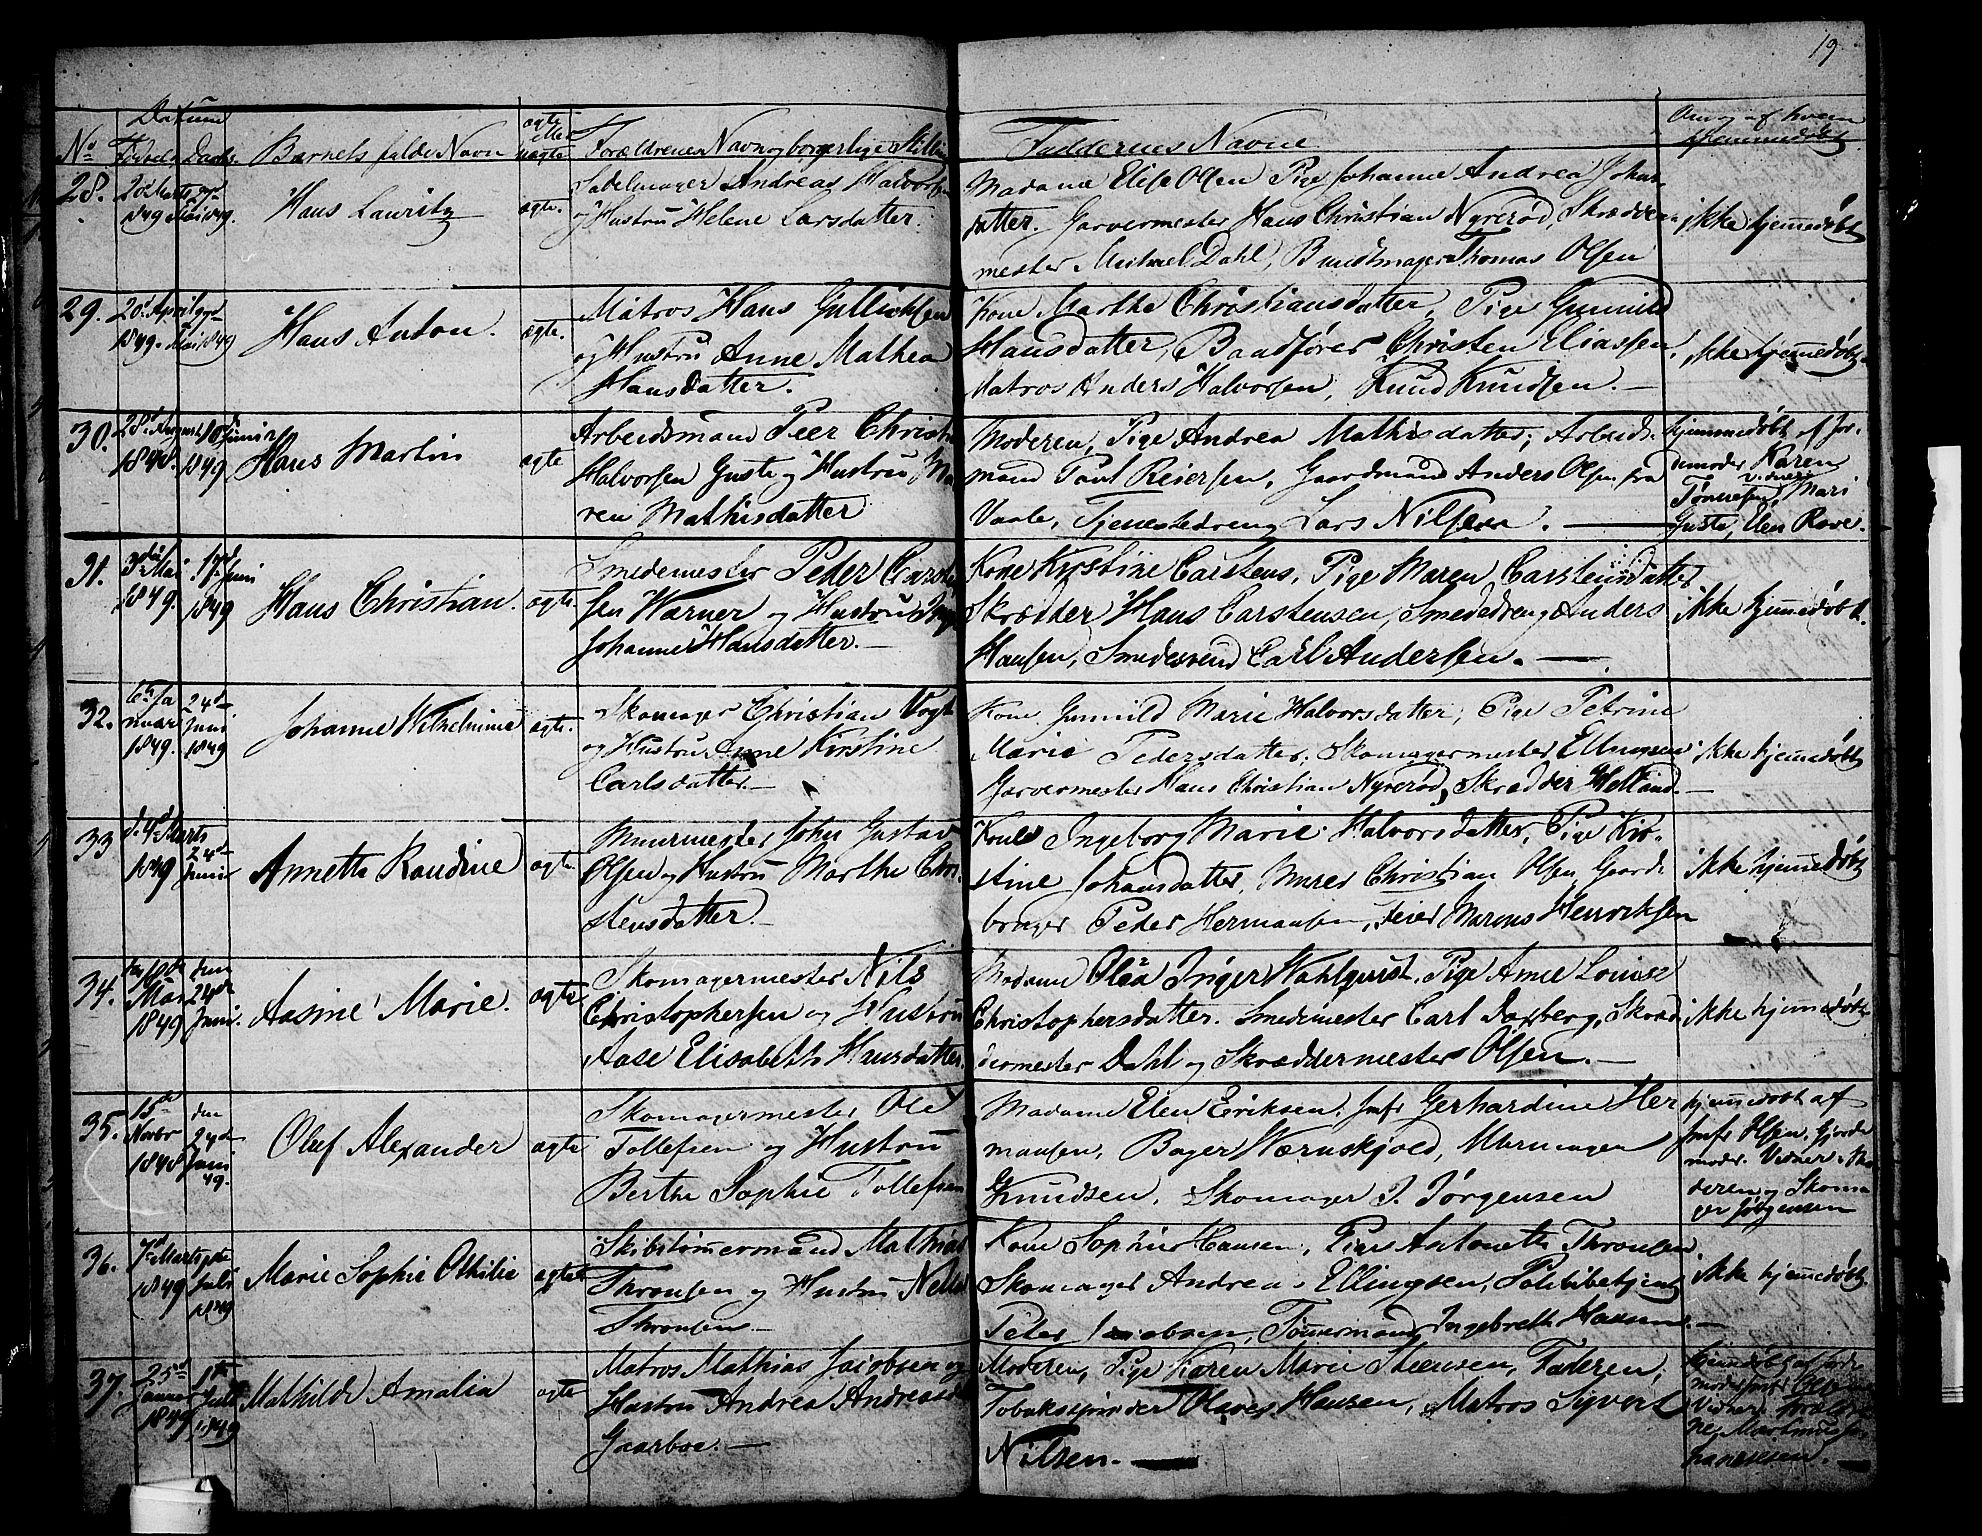 19
Datum
No Fødsels Daabs Barnets fulde Navn ægte eller uægte Forældrenes Navn og borgerlige Stilling
Faddernes Navne
Om og af hvem hjemmedøbt
28.
20d Marts
1849
Mai 1849.
Hans Lauritz
ægte.
Sadelmager Andreas Halvorsen
og Hustru Helene Larsdatter.
Madame Elise Olsen Pige Johanne Andrea Johns-
datter. Garvermester Hans Christian Nyrerød, Skrædder
mester Michael Dahl, Bundtmager Thomas Olsen
ikke hjemmedøbt
29.
20d April
1849.
Mai 1849
Hans Anton.
ægte.
Matros Hans Gullichsen
og Hustru Anne Mathea
Hansdatter.
Kone Marthe Christiansdatter, Pige Gunnild
Hansdatter, Baadfører Christen Eliassen,
Matros Anders Halvorsen, Knud Knudsen. —
ikke hjemmedøbt.
30.
28d August
1848.
10d Juni
1849
Hans Martin
ægte
Arbeidsmand Peer Christian
Halvorsen Guste og Hustru Ma-
ren Mathisdatter
Moderen, Pige Andrea Mathisdatter, Arbeids-
mand Paul Reiersen, Gaardmand Anders Olsen fra
Vaale, Tjenestedreng Lars Nilsen. —
hjemmedøbt af Jor-
demoder Karen
Tønnesen, vidner Mari
Guste, Elen Rove.
31.
3d Mai
1849.
17d Juni
1849
Hans Christian.
ægte.
Smedemester Peder Carsten-
sen Warner og Hustru Inger
Johanne Hansdatter. —
Kone Kirstine Carstens, Pige Maren Carstensdatter
Skrædder Hans Carstensen, Smededreng Anders
Hansen, Smedesvend Carl Andersen. —
ikke hjemmedøbt.
32.
6te Ja
nuar
1849.
24d
Juni
1849
Johanne Wilhelmine
ægte.
Skomager Christian Vogt
og Hustru Anne Kirstine
Carlsdatter. —
Kone Gunnild Marie Halvorsdatter, Pige Petrine
Marie Pedersdatter. Skomagermester Ellingsen
Garvermester Hans Christian Nyrerød, Skrædder Helland. —
ikke hjemmedøbt
33
d. 4d Marts
1849
24d
Juni
Annette Randine
ægte
Muurmester John Gustav
Olsen og Hustru Marthe Chri-
stensdatter. —
Kone Ingeborg Marie Halvorsdatter, Pige Kir-
stine Johansdatter, Murer Christian Olsen, Gaard-
bruger Peder Hermansen, Feier Marcus Henriksen
ikke hjemmedøbt
34.
den 10de
Mai
1849
den
24de
Juni.
Aasine Marie.
ægte
Skomagermester Nils
Christophersen og Hustru
Aase Elisabeth Hansdatter.
Madame Olea Inger Wahlquist, Pige Anne Louise
Christophersdatter. Smedmester Carl Dasberg, Skræd-
dermester Dahl og Skræddermester Olsen. —
ikke hjemmedøbt
35.
15de
Novbr
1848
den
24d
Juni
49.
Oluf Alexander
ægte
Skomagermester Ole
Tollefsen og Hustru
Berthe Sophie Tollefsen
Madame Elen Eriksen. Jmfr Gerhardine Her
mansen, Bager Wærnskjold, Murmager
Knudsen, Skomager J. Jørgensen
hjemmedøbt af
Jmfr Olsen, Gjorde
moder. Vidner: Mo
deren og Skoma
ger Jørgensen
36.
7d Marts
1849
Juli
1849
Marie Sophie Othilie
ægte
Skibstømmermand Mathias
Thronsen og Hustru Nelle
Thronsen. —
Kone Sophie Hansen, Pige Antonette Thronsen
Skomager Andreas Ellingsen, Politibetjent
Peder Jacobsen, Tømmermand Ingebreth Hansen. —
ikke hjemmedøbt
37.
25d
Januar
1849
1te
Juli
1849
Mathilde Amalia
ægte
Matros Mathias Jacobsen og
Hustru Andrea Andreasd.
Gaarboe. —
Moderen, Pige Karen Marie Steensen, Faderen,
Tobakspinder Olaves Hansen, Matros Syvert
Nilsen. —
hjemmedøbt af Jorde
moder Olsen
Vidner: Forældre
ne, Martinus Jo
hannessen. —